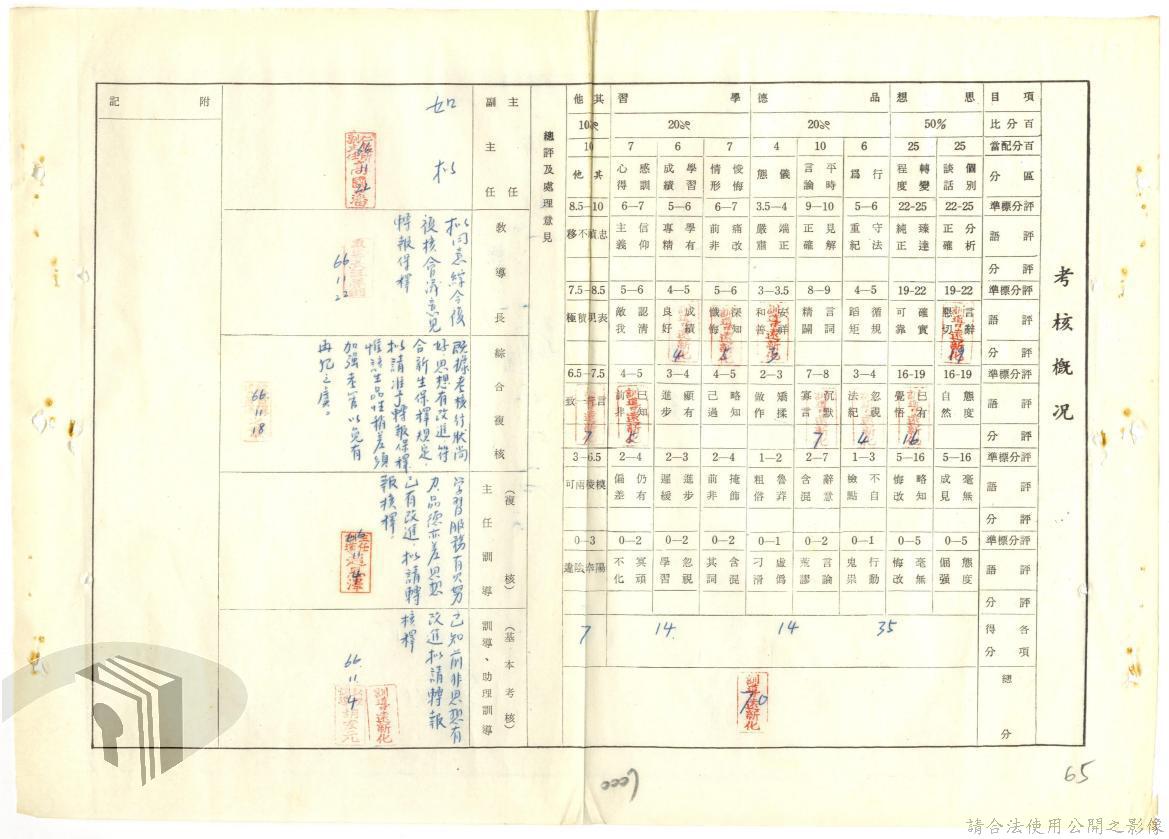 考核概況
項目 思想 品德 學習 其他
百分比 50% 20% 20% 10%
百分配當 25 25 6 10 4 7 6 7 10
區分 個別談話 轉變程度 行為 平時言論 儀態 悛悔情形 學習成績 感訓心得 其他
評分標準 22-25 22-25 5—6 9—10 3.5—4 6—7 5—6 6—7 8.5—10
評語 分析正確 臻達純正 守法重紀 見解正確 端正嚴肅 痛改前非 學有專精 信仰主義 忠貞不移
評分
評分標準 19-22 19-22 4—5 8—9 3—3.5 5—6 4—5 5—6 7.5—8.5
評語 言辭懇切 確實可靠 循規蹈矩 言詞精闢 安詳和善 深知懺悔 成績良好 認清敵我 表現積極
評分 19 3 5 4
評分標準 16-19 16-19 3—4 7—8 2—3 4—5 3—4 4—5 6.5—7.5
評語 態度自然 已有覺悟 忽視法紀 沉默寡言 矯揉做作 略知己過 顯有進步 已知前非 言行一致
評分 16 4 7 5 7
評分標準 5—16 5—16 1—3 2—7 1—2 2—4 2—3 2—4 3—6.5
評語 毫無成見 略知悔改 不自檢點 辭意含混 魯莽粗俗 掩飾前非 進步遲緩 仍有偏差 模稜兩可
評分
評分標準 0—5 0—5 0—1 0—2 0—1 0—2 0—2 0—2 0—3
評語 態度倔强 毫無悔改 行動鬼祟 言論荒謬 虛僞刁滑 含混其詞 忽視學習 冥頑不化 陽奉陰違
評分
各項得分 35 14 14 7
總分 70
總評及處理意見
(基本考核) 訓導、助理訓導
已知前非思想有
改進擬請轉報
核釋
66.11.4
(複核) 主任訓導
學習服務有欠努
力品德亦差思想
已有改進,擬請轉
報核釋.
綜合複核
既據考核行狀尚
好,思想有改進符
合新生保釋規定,
擬請准予轉報保釋
惟該生品性稍差須
加強考管以免有
再犯之虞。
66.11.18
教導長
擬同意綜合複
複核會議意見
轉報保釋
66.11.22
主任 副主任
如擬
附記
65
6000
請合法使用公開之影像